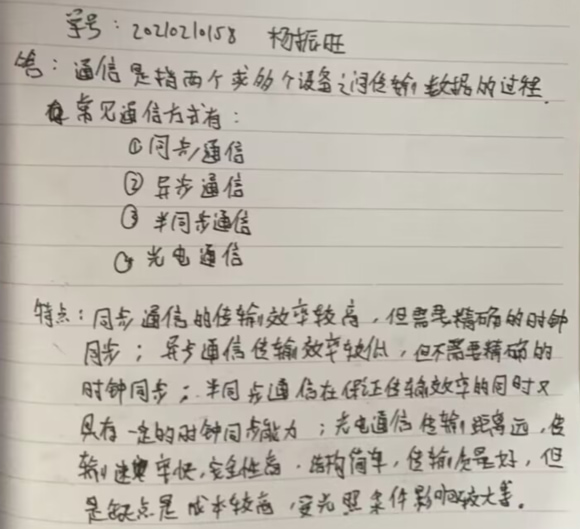 学号：2021020158 杨振旺
答：通信是指两个或多个设备之间传输数据的过程.
常见通信方式有：
①同步通信
②异步通信
③半同步通信
④光电通信
特点：同步通信的传输效率较高，但需要精确的时钟
同步；异步通信传输效率较低，但不需要精确的
时钟同步；半同步通信在保证传输效率的同时又
具有一定的时钟同步能力；光电通信传输距离远，传
输速率快，安全性高，结构简单，传输质量好，但
是缺点是成本较高，受光照条件影响较大等。